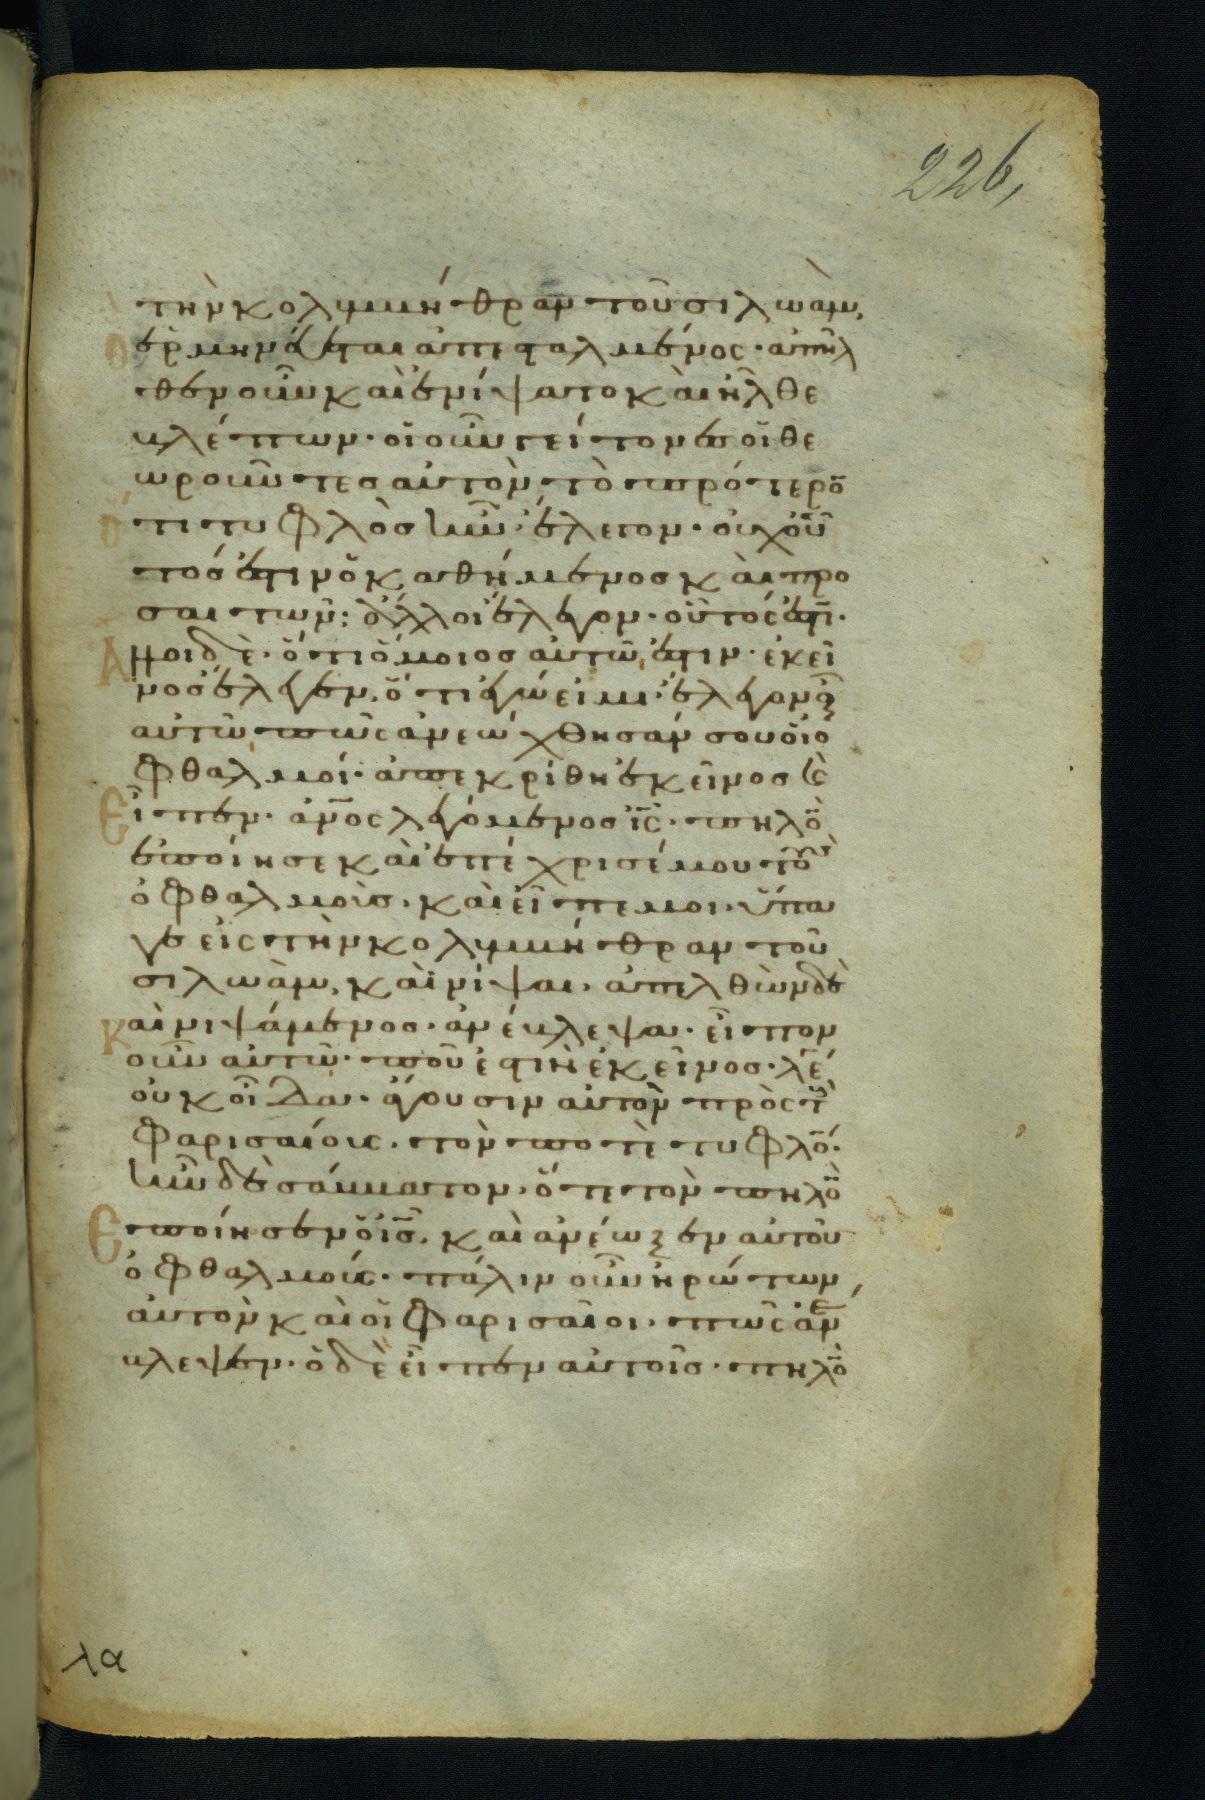 226,
τὴν κολυμβήθραν τοῦ σιλωὰμ,
ὃ ἑρμηνεύεται ἀπεσταλμένος· ἀπῆλ
θεν οὖν καὶ ἐνίψατο καὶ ἦλθε
βλέπων· οἱ οὖν γείτονες οἱ θε
ωροῦντες αὐτὸν τὸ πρότερο̄
ὅτι τυφλὸσ ἦν· ἔλεγον· οὐχ οὗ
τόσ ἐστιν ὁ καθήμενοσ καὶ προ
σαιτῶν; ἄλλοι ἔλεγον· οὗτός ἐστῑ·
Ἄλλοι δὲ· ὅτι ὅμοιοσ αὐτῶ ἐστιν· ἐκεῖ
νοσ ἔλεγεν, ὅτι ἐγώ εἰμι· ἔλεγον οὖν
αὐτῶ πῶς ἀνεώχθησάν σου οἱ ὀ
φθαλμοί· ἀπεκρίθη ἐκεῖνοσ (καὶ)
Εἶπεν· ἄν̅ος λεγόμενοσ ι̅ς̅· πηλὸ̄
ἐποίησε καὶ ἐπέχρισέ μου τοὺς
ὀφθαλμοὺσ· καὶ εἶπέ μοι· ὕπα
γε εἰς τὴν κολυμβήθραν τοῦ
σιλωὰμ, καὶ νίψαι· ἀπελθὼν δὲ
Καὶ νιψάμενοσ· ἀνέβλεψα· εἶπον
οὖν αὐτῶ· ποῦ ἐστὶν ἐκεῖνοσ· λέγει
οὐκ οἶδα· ἄγουσιν αὐτὸν πρὸς τοὺς
φαρισαίους· τόν ποτὲ τυφλό̄·
ἦν δὲ σάββατον· ὅτε τὸν πηλὸ̄
Ἐποίησεν ὁ ι̅ς̅· καὶ ἀνέωξεν αὐτοῦ
ὀφθαλμούς· πάλιν οὖν ἠρώτων
αὐτὸν καὶ οἱ φαρισαῖοι· πῶς ἀνέ
βλεψεν· ὁ δὲ εἶπεν αὐτοῖσ· πηλὸ̄
λα